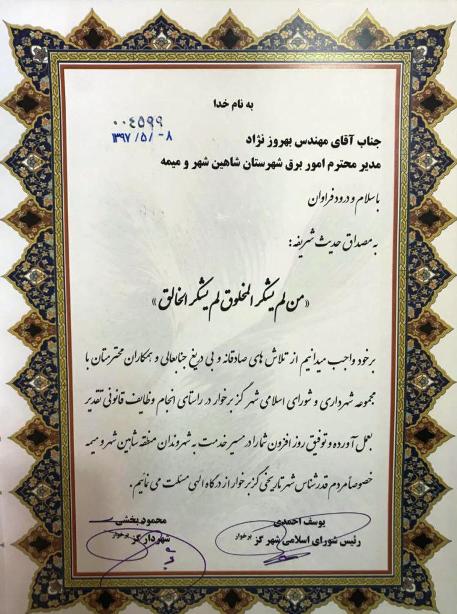 به نام خدا
۰۰۴۵۹۹
۱۳۹۷/۵/-۸
جناب آقای مهندس بهروز نژاد
مدیر محترم امور برق شهرستان شاهین شهر و میمه
با سلام و درود فراوان
به مصداق حدیث شریفه:
«من لم یشکر المخلوق لم یشکر الخالق»
بر خود واجب میدانیم از تلاش های صادقانه و بی دریغ جنابعالی و همکاران محترمتان با
مجموعه شهرداری و شورای اسلامی شهر گز برخوار در راستای انجام وظایف قانونی تقدیر
بعمل آورده و توفیق روز افزون شما در مسیر خدمت به شهروندان منطقه شاهین شهر و میمه
خصوصاً مردم قدرشناس شهر تاریخی گز برخوار از درگاه الهی مسئلت می نمائیم.
یوسف احمدی
رئیس شورای اسلامی شهر گز برخوار
محمود بخشی
شهردار گز برخوار